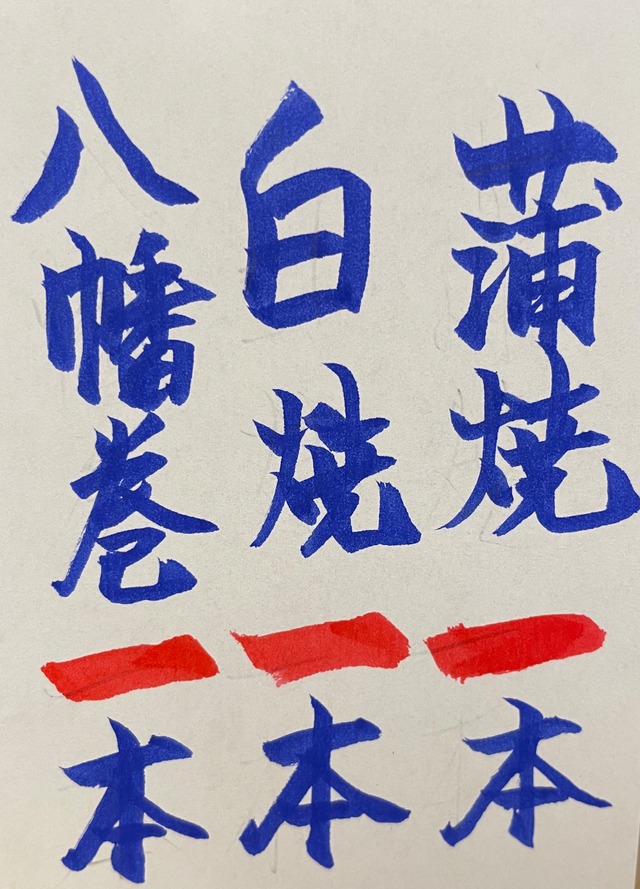 蒲焼一本
白焼一本
八幡巻一本